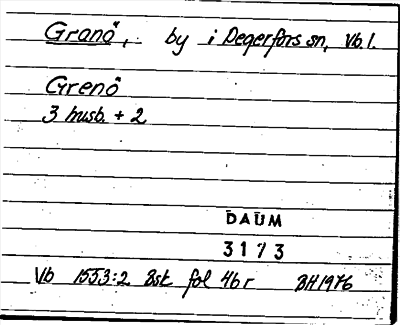 Granö, by i Degerfors sn, Vb l.
Grenö
3 husb. + 2
DAUM
3173
Vb 1553:2 Bst fol 46r BH 1976